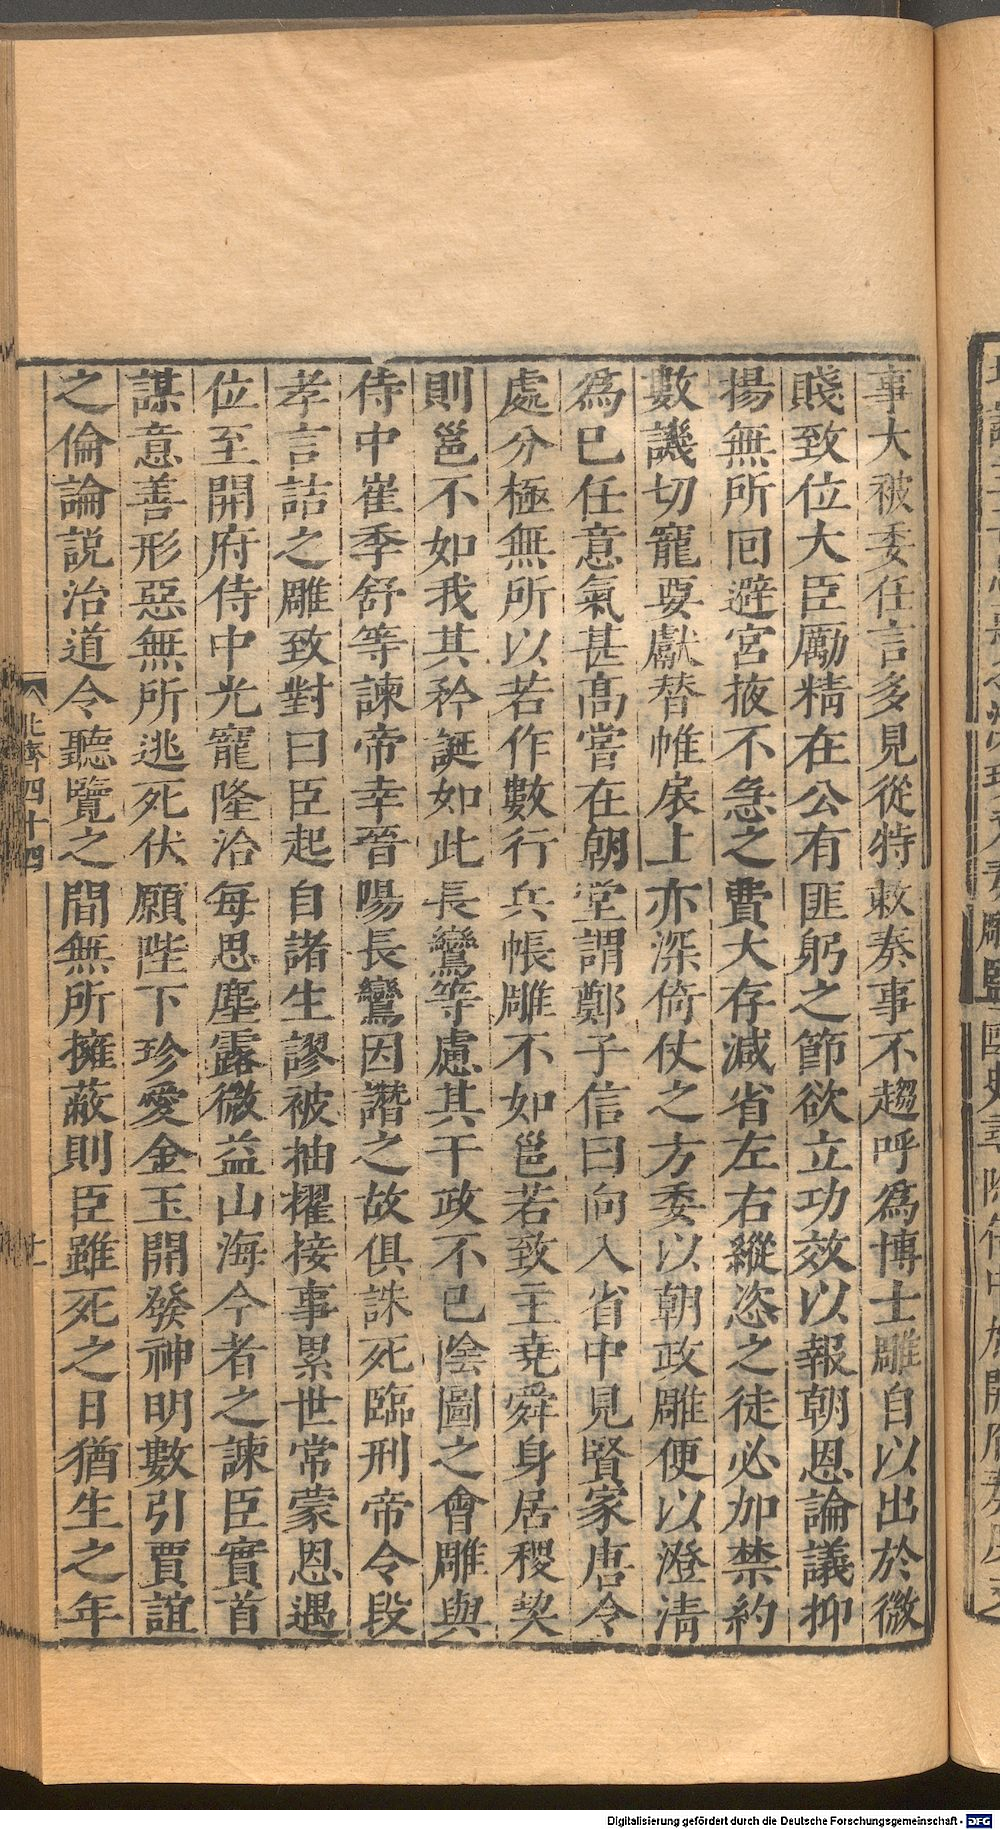 事大被委任言多見從特敕奏事不趨呼爲博士雕自以出於微
賤致位大臣厲精在公有匪躬之節欲立功效以報朝恩論議抑
揚無所回避宮掖不急之費大存減省左右縱恣之徒必加禁約
數譏切寵要獻替帷扆上亦深倚仗之方委以朝政雕便以澄清
爲已任意氣甚高嘗在朝堂謂鄭子信曰向入省中見賢家唐令
處分極無所以若作數行兵帳雕不如邕若致主堯舜身居稷契
則邕不如我其矜誕如此長鸞等慮其干政不已陰圖之會雕與
侍中崔季舒等諫帝幸晉陽長鸞因譖之故俱誅死臨刑帝令段
孝言詰之雕致對曰臣起自諸生謬被抽擢接事累世常蒙恩遇
位至開府侍中光寵隆洽每思塵露微益山海今者之諫臣實首
謀意善形惡無所逃死伏願陛下珍愛金玉開發神明數引賈誼
之倫論説治道令聽覽之間無所擁蔽則臣雖死之日猶生之年
北齊四十四
十一
Digitalisierung gefördert durch die Deutsche Forschungsgemeinschaft - DFG